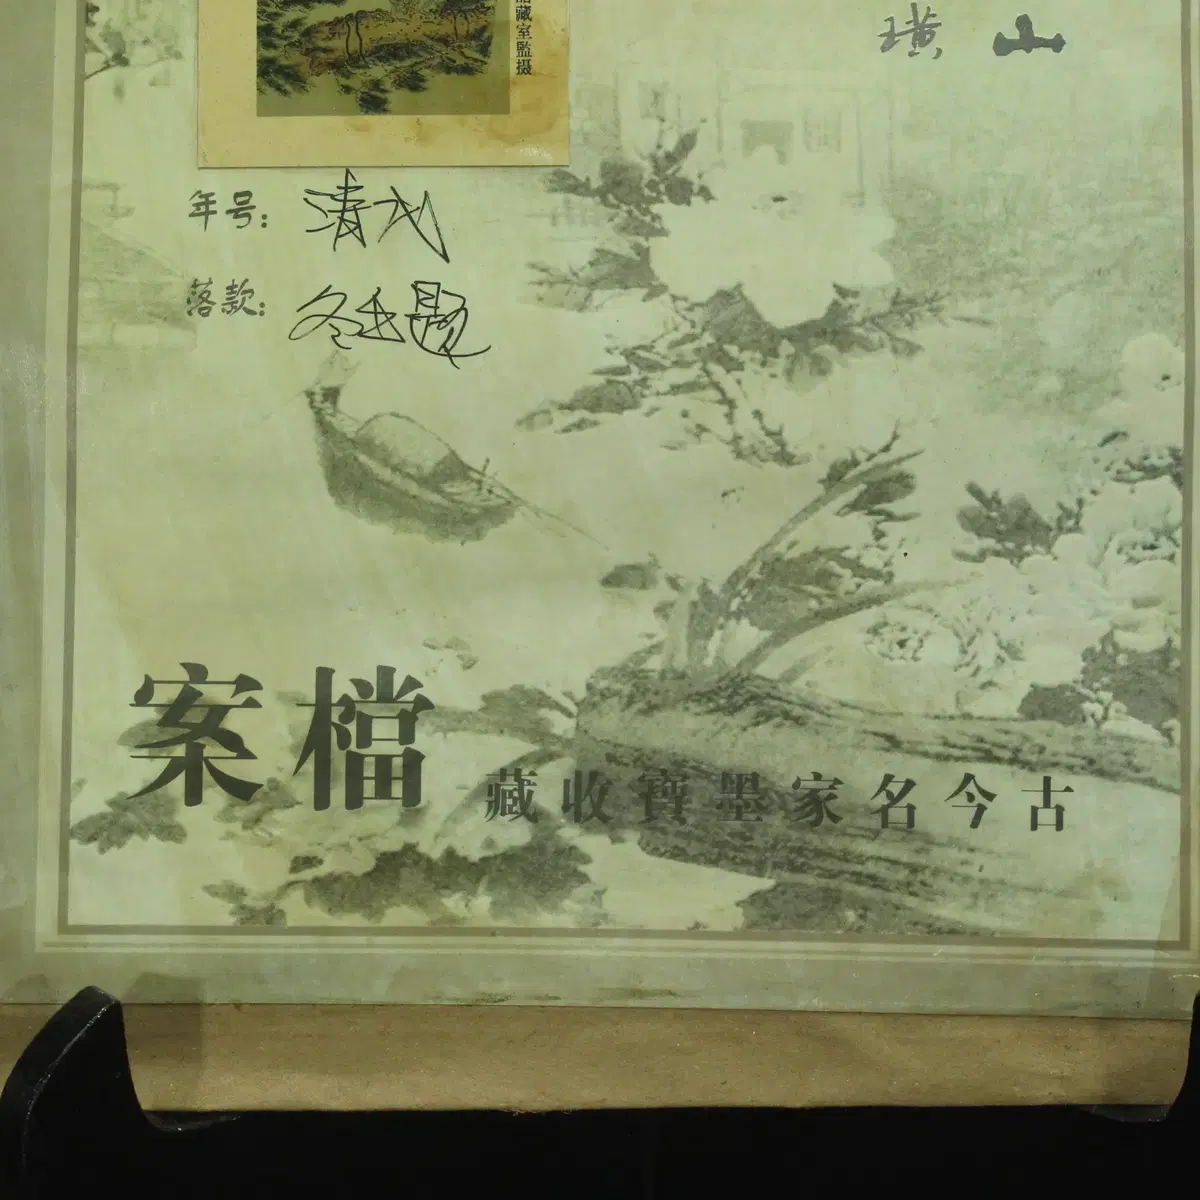 藏室監摄
山
璜
年号: 清代
落款: 冬 题
古今名家墨寶收藏
檔案